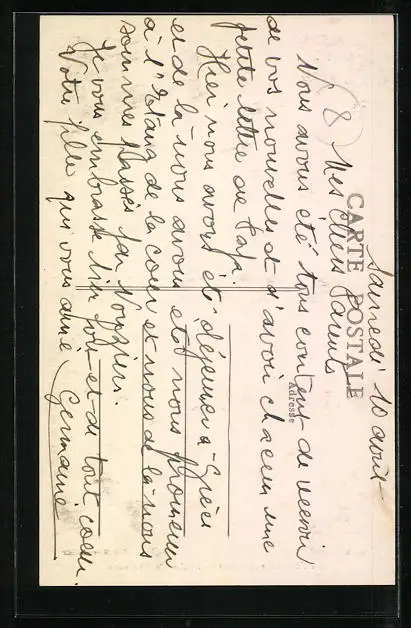 Samedi 10 août
CARTE POSTALE
(8) Mes chers Parents
Nous avons été tous content de recevoir
de vos nouvelles et d'avoir chacun une
petite lettre de Papa.
Adresse
Hier nous avons été déjeuner à
et de là nous avons été nous promener
à l'Etang de la cour et nous de là nous
sommes passés par
Je vous embrasse bien fort et de tout coeur.
Votre fille qui vous aime Germaine